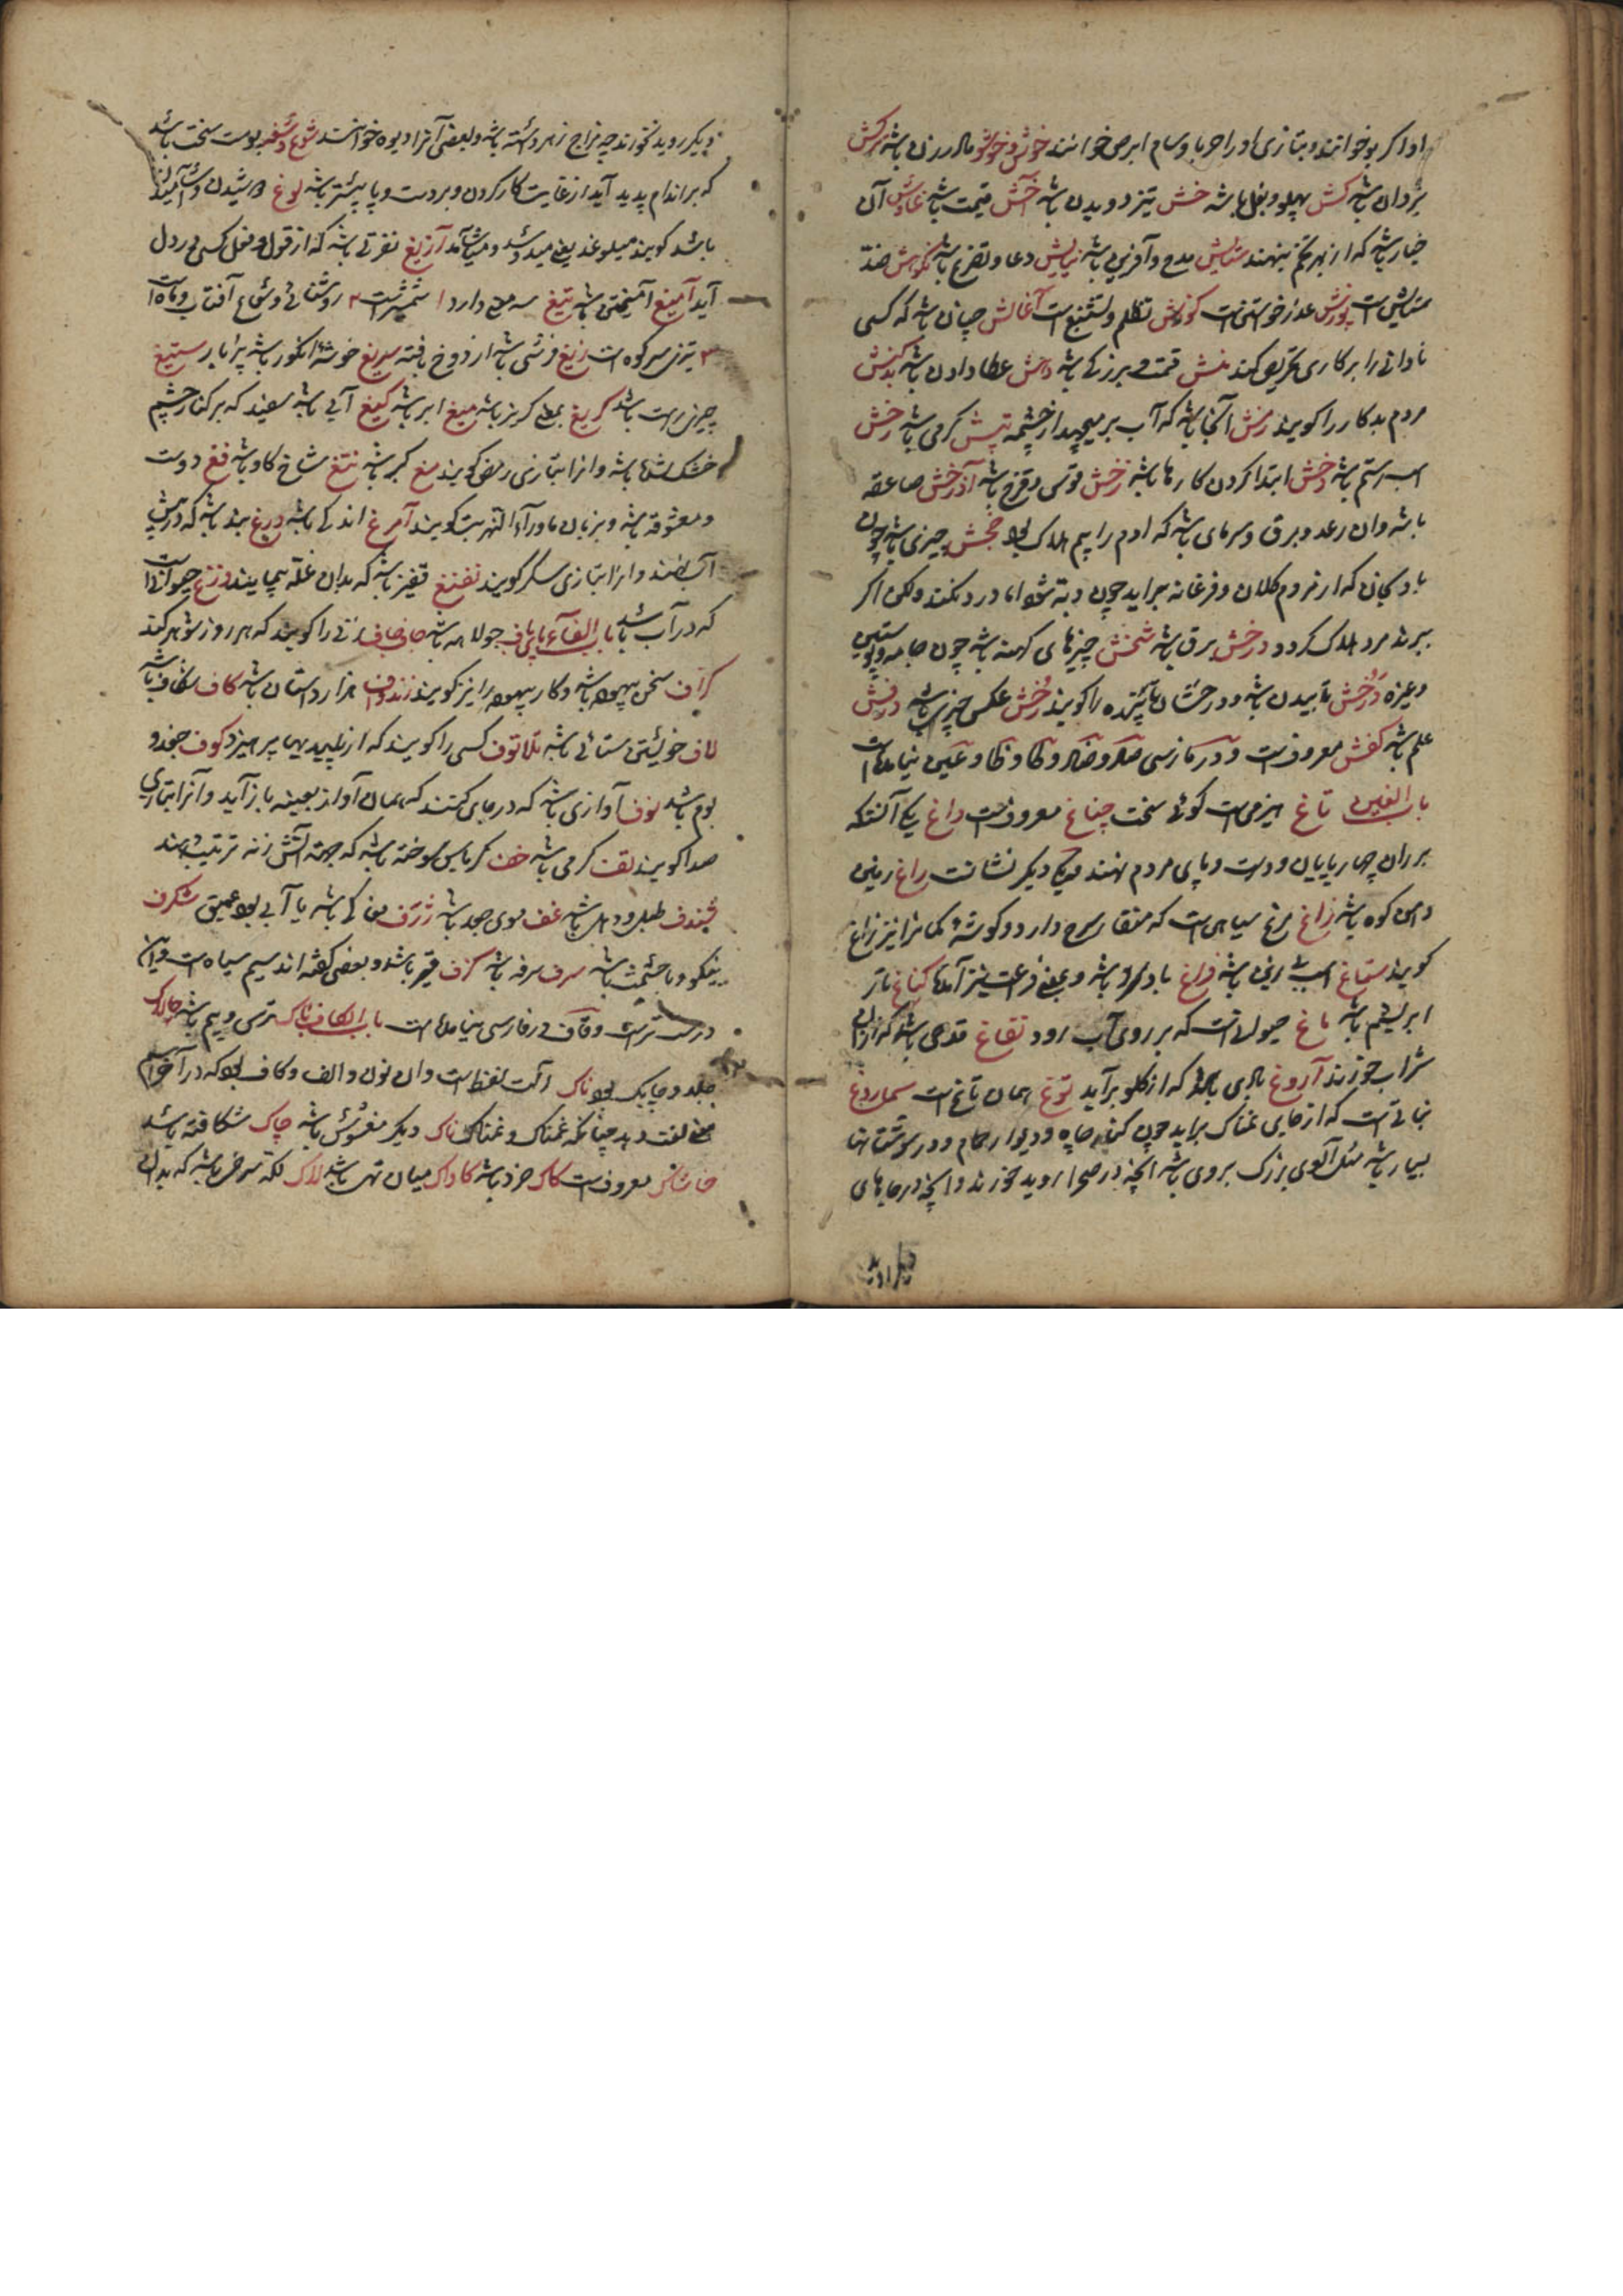 اورا کربو خوانند و بتازی اورا حربا و سام ابرص خوانند خوش و خوشو مادر زن باشد برکش
یزدان باشد کش پهلو و بغل باشد خش تیز دویدن باشد اخش قیمت باشد غاوش آن
خیار باشد که از بهر تخم بنهند ستایش مدح و آفرین باشد نیایش دعا و تضرع باشد نکوهش ضد
ستایش است پوزش عذر خواستن است کوزش تظلم و تشنیع است آغالش چنان باشد که کسی
نادانی را بر کاری تحریص کند منش همت و برزکی باشد داشن عطا دادن باشد بدکنش
مردم بدکار را کویند زهش آنجا باشد که آب بر میجهد از چشمه تپش کرمی باشد رخش
اسب رستم باشد دخش ابتدا کردن کارها باشد رخش قوس و قزح باشد آذرخش صاعقه
باشد وان رعد و برق و سرمای باشد که ادم را بیم هلاک بود خجش چیزی باشد چون
بادنجان که از مردم کلان و فرغانه براید چون دبه شود اما درد نکند ولکن اکر
ببرند مرد هلاک کردد درخش برق باشد شخش چیزهای کهنه باشد چون جامه و پوستین
و غیره درخش تابیدن باشد و درخشان تابنده را کویند رخش عکس چیزی باشد درفش
علم باشد کفش معروفست و در فارسی صاد و ضاد و طا و ظا و عین نیامده است
باب الغین تاغ هیزمی است کوهی سخت چناغ معروفست داغ یکی آنستکه
بر ران چهارپایان و دست و پای مردم نهند و یکی دیکر نشانست راغ زمین
دامن کوه باشد زاغ مرغ سیاهی است که منقار سرخ دارد و کوشهٔ کمانرا نیز زاغ
کویند ستاغ اسب زین باشد فراغ باد سرد باشد و بمعنی فرعت نیز آمده کناغ تار
ابریشم باشد ماغ حیوانیست که بر روی آب رود تفاغ قدحی باشد که از ان
شراب خورند آروغ بادی باشد که از کلو برآید توغ همان تاغ است سمارغ
نباتی است که از جای نمناک براید چون کنار چاه و دیوار حمام و در سوستانها
بسیار باشد مثل آلوی بزرک بروی باشد انچه در صحرا روید خورند و انچه در جایهای
دیکر روید
دیکر روید نخورند چه مزاج زهر داشته باشد و بعضی آنرا دیوه خوانند شوغ و شغ پوست سخت باشد
که بر اندام پدید آید از غایت کار کردن و بر دست و پا بیشتر باشد لوغ دوشیدن و آشامیدن
باشد کویند میلوغد یعنی میدوشد و میاشامد آزیغ نفرتی باشد که از قول و فعل کسی در دل
آید آمیغ آمیختن باشد تیغ سه معنی دارد ۱ شمشیرست ۲ روشنائی و شعاع آفتاب و ماه است
۳ تیزی سر کوه است زیغ فرشی باشد از دوخ بافته سریغ خوشه انکور باشد پر بار ستیغ
چیزی راست باشد کریغ بمعنی کریز باشد میغ ابر باشد کیغ آبی باشد سفید که بر کنار چشم
خشک شده باشد و انرا بتازی رمص کویند مغ کبر باشد نتغ شاخ کاو باشد فغ دوست
و معشوقه باشد و بزبان ماورآء النهر بت کویند آمرغ اندکی باشد ورغ بند باشد که در پیش
آب بندند و انرا بتازی سکر کویند نفنغ قفیز باشد که بدان غله پیمایند وزغ حیوانیست
که در آب باشد باب الفآء بای باف جولاهه باشد جاف جاف زنی را کویند که هر روز شوهر کند
کزاف سخن بیهوده باشد و کار بیهوده را نیز کویند زندواف هزار دستان باشد کاف شکاف باشد
لاف خویشتن ستائی باشد تلاتوف کسی را کویند که از پلیدیها پرهیزد کوف جغد و
بوم باشد نوف آوازی باشد که در جای کنند که همان آواز بعینه باز آید و آنرا بتازی
صدا کویند تف کرمی باشد خف کرباس سوخته باشد که جهة آتش زنه ترتیب دهند
تبندف طبل و دهل باشد غف موی جعد باشد ژرف مغاکی باشد یا آبی بود عمیق شکرف
نیکو و با حشمت باشد سرف سرفه باشد کزف قیر باشد و بعضی کفته اند سیم سیاه است و این
درست ترست و قاف در فارسی نیامده است باب الکاف باک ترس و بیم باشد چالاک
جلد و چابک بود ناک آن لفظ است وان نون و الف و کاف بود که در آخر اسم
معنی لغت دهد چنانکه غمناک و نمناک ناک دیکر مغشوش باشد چاک شکافته باشد
خاشاک معروفست کاک مرد باشد کاواک میان تهی باشد لاک لکه سرخ باشد که بدان